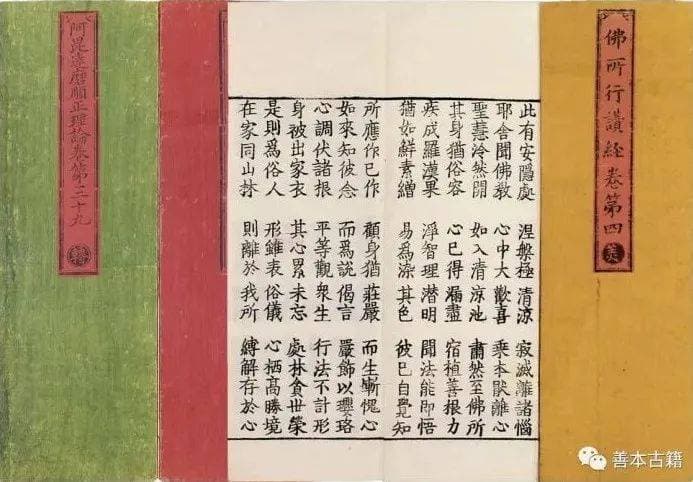 佛所行讃経卷第四
此有安隱處 涅槃極清涼 寂滅離諸惱
耶舍聞佛教 心中大歡喜 乘本猒離心
聖慧泠然開 如入清涼池 肅然至佛所
其身猶俗容 心已得漏盡 宿植善根力
疾成羅漢果 淨智理潜明 聞法能即悟
猶如鮮素繒 易爲染其色 彼已自覺知
所應作已作 顧身猶莊嚴 而生慚愧心
如來知彼念 而爲說偈言 嚴飾以瓔珞
心調伏諸根 平等觀衆生 行法不計形
身被出家衣 其心累未忘 處林貪世榮
是則爲俗人 形雖表俗儀 心栖髙勝境
在家同山林 則離於我所 縛解存於心
阿毘達磨順正理論卷第二十九
善本古籍